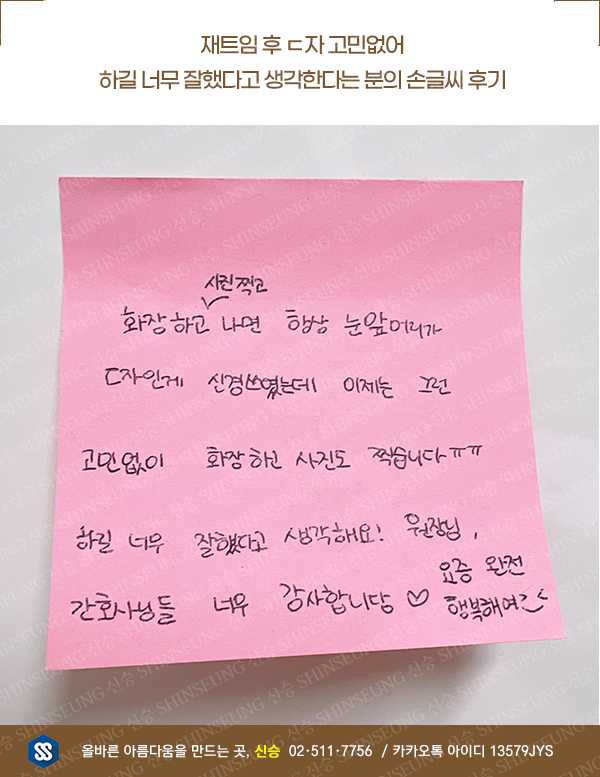 재트임 후 ㄷ자 고민없어
하길 너무 잘했다고 생각한다는 분의 손글씨 후기
사진찍고
화장하고 나면 항상 눈앞머리가
ㄷ자인게 신경쓰였는데 이제는 그런
고민없이 화장하고 사진도 찍습니다ㅠㅠ
하길 너무 잘했다고 생각해요! 원장님,
간호사님들 너무 감사합니당♡ 요즘 완전
행복해여
SHINSEUNG 신승
올바른 아름다움을 만드는 곳, 신승 02·511·7756 / 카카오톡 아이디 13579JYS